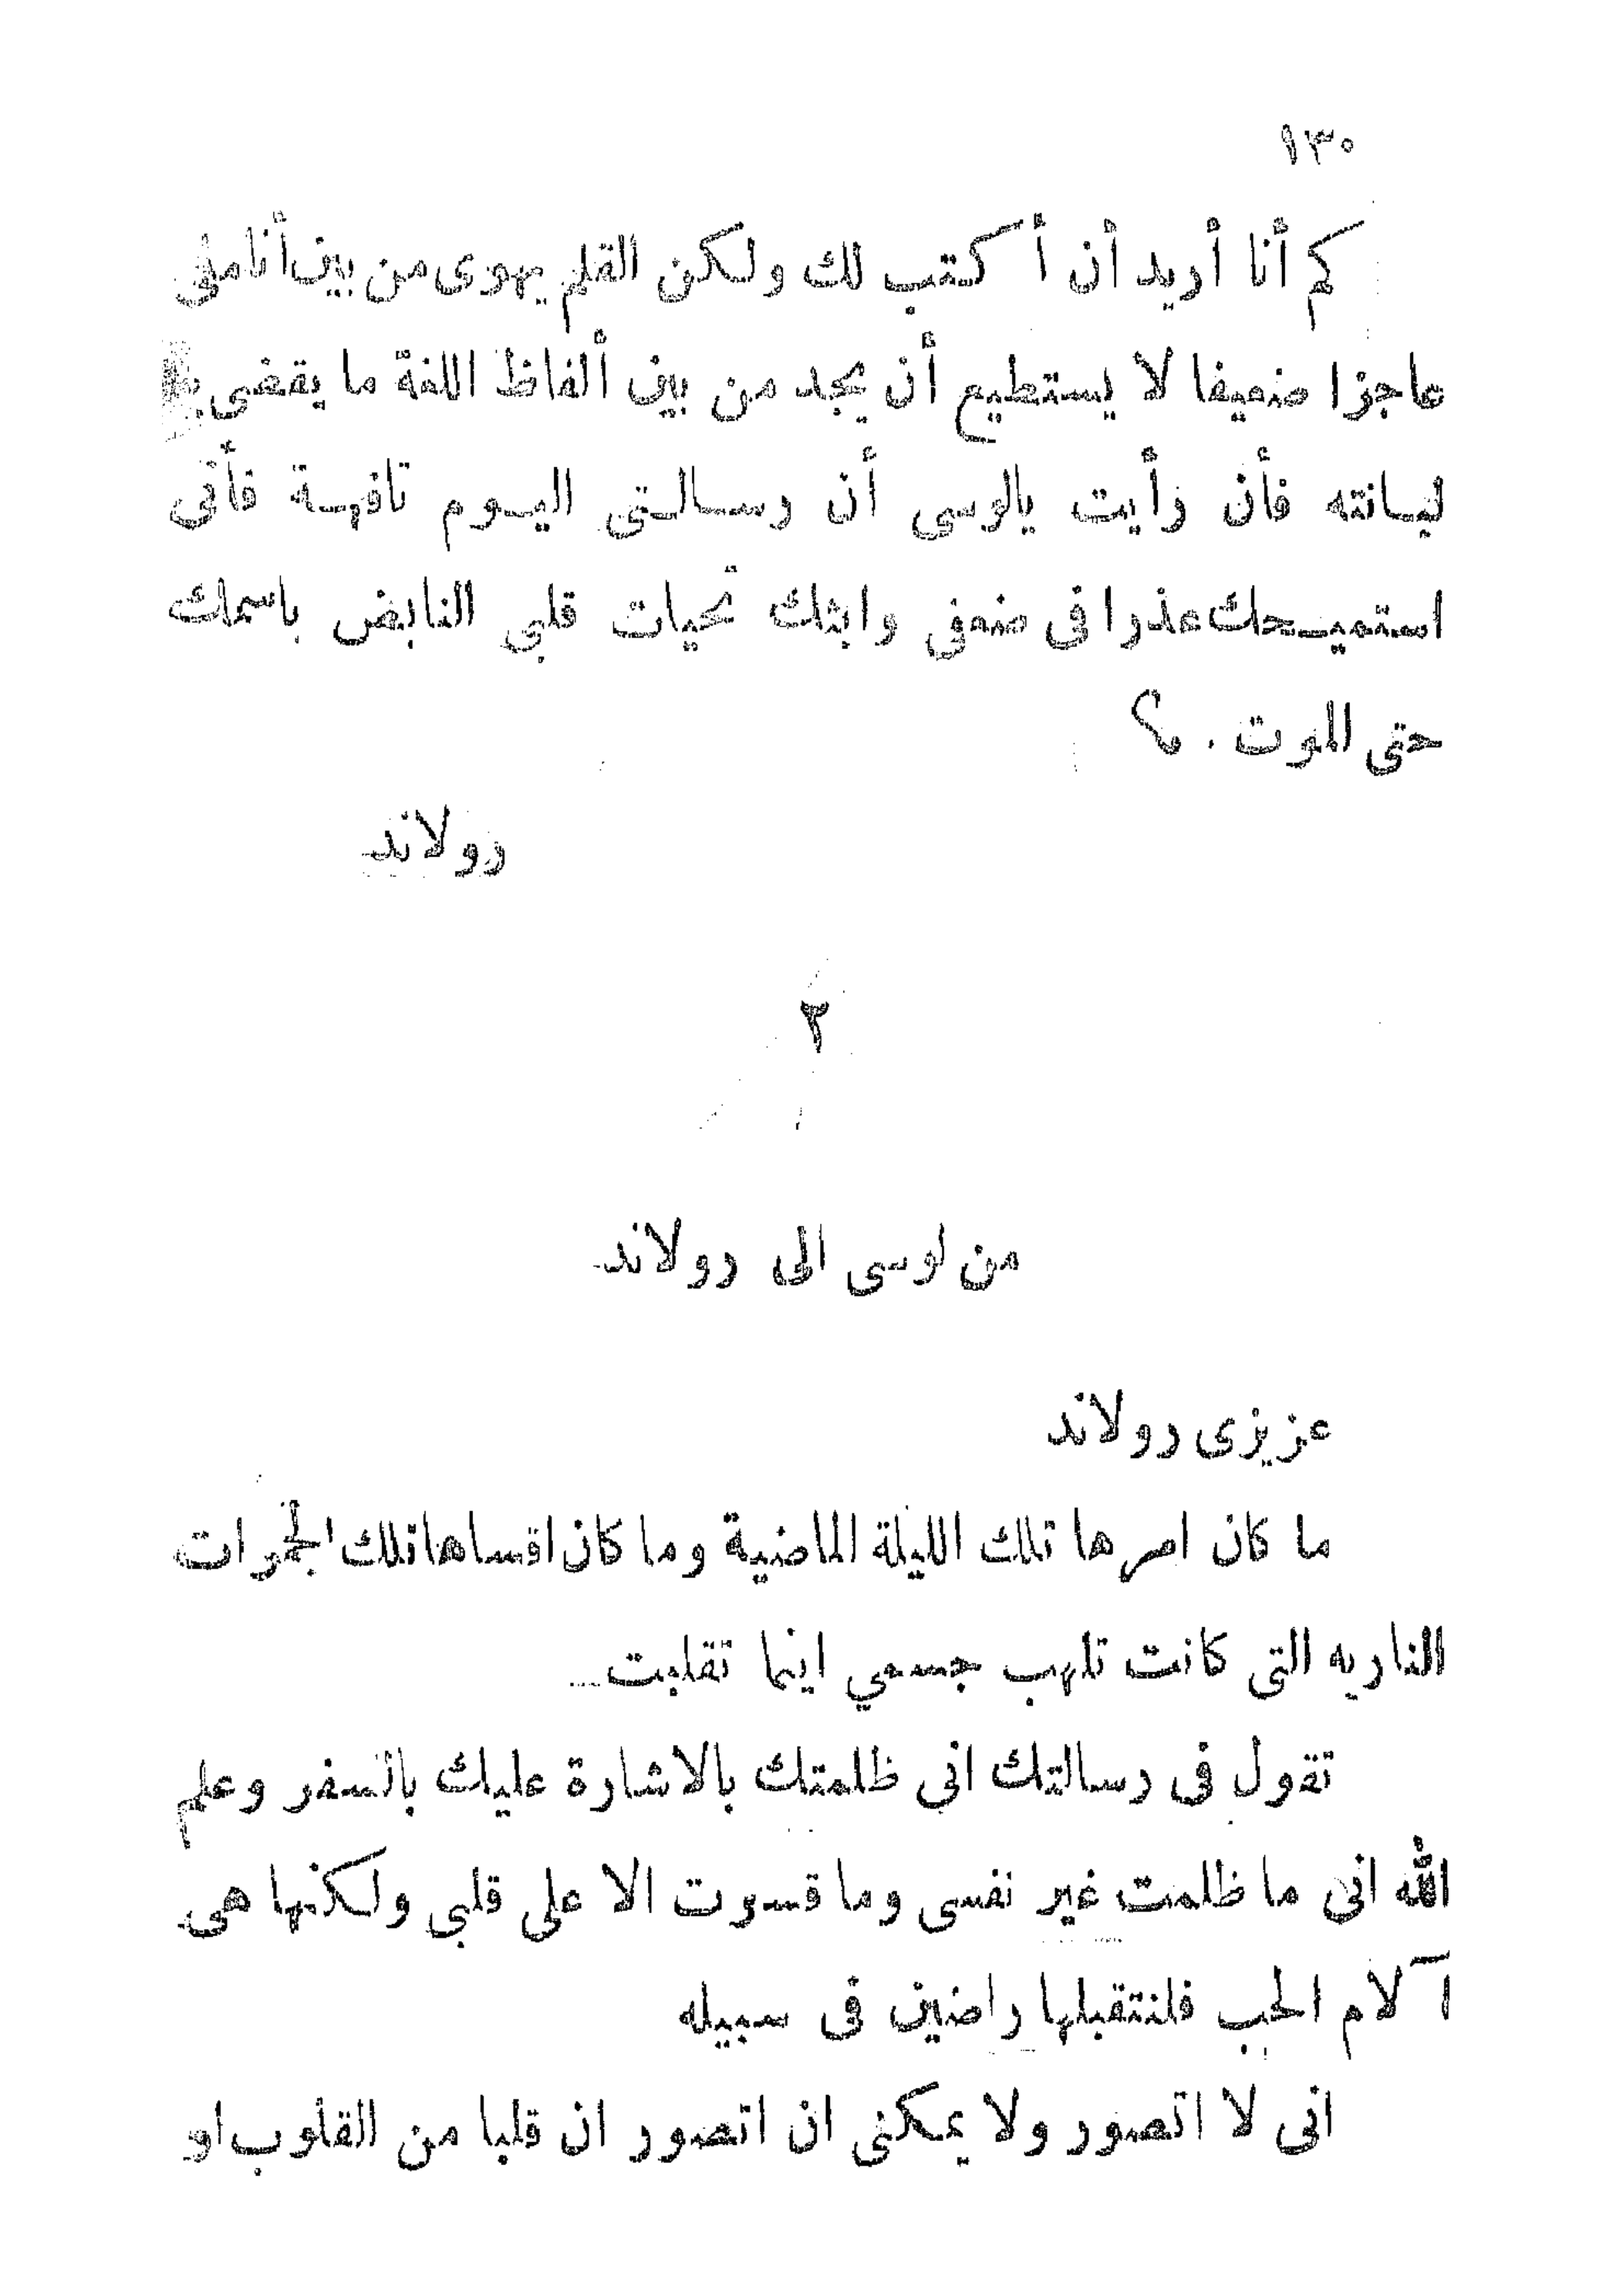 ١٣٠
كم أنا أريد أن أكتب لك ولكن القلم يهوى من بين أناملى
عاجزا ضعيفا لا يستطيع أن يجد من بين ألفاظ اللغة ما يقضى به
لبانته فأن رأيت يالوسى أن رسالتى اليوم تافهة فأنى
استميحك عذرا فى ضعفى وابثك تحيات قلبى النابض باسمك
حتى الموت . م؟
رولاند
٢
من لوسى الى رولاند
عزيزى رولاند
ما كان امرها تلك الليلة الماضية وما كان اقساها تلك الجمرات
الناريه التى كانت تلهب جسمي اينما تقلبت
تقول فى رسالتك انى ظلمتك بالاشارة عليك بالسفر وعلم
الله انى ما ظلمت غير نفسى وما قسوت الا على قلبى ولكنها هى
آلام الحب فلنتقبلها راضين فى سبيله
انى لا اتصور ولا يمكنى ان اتصور ان قلبا من القلوب او